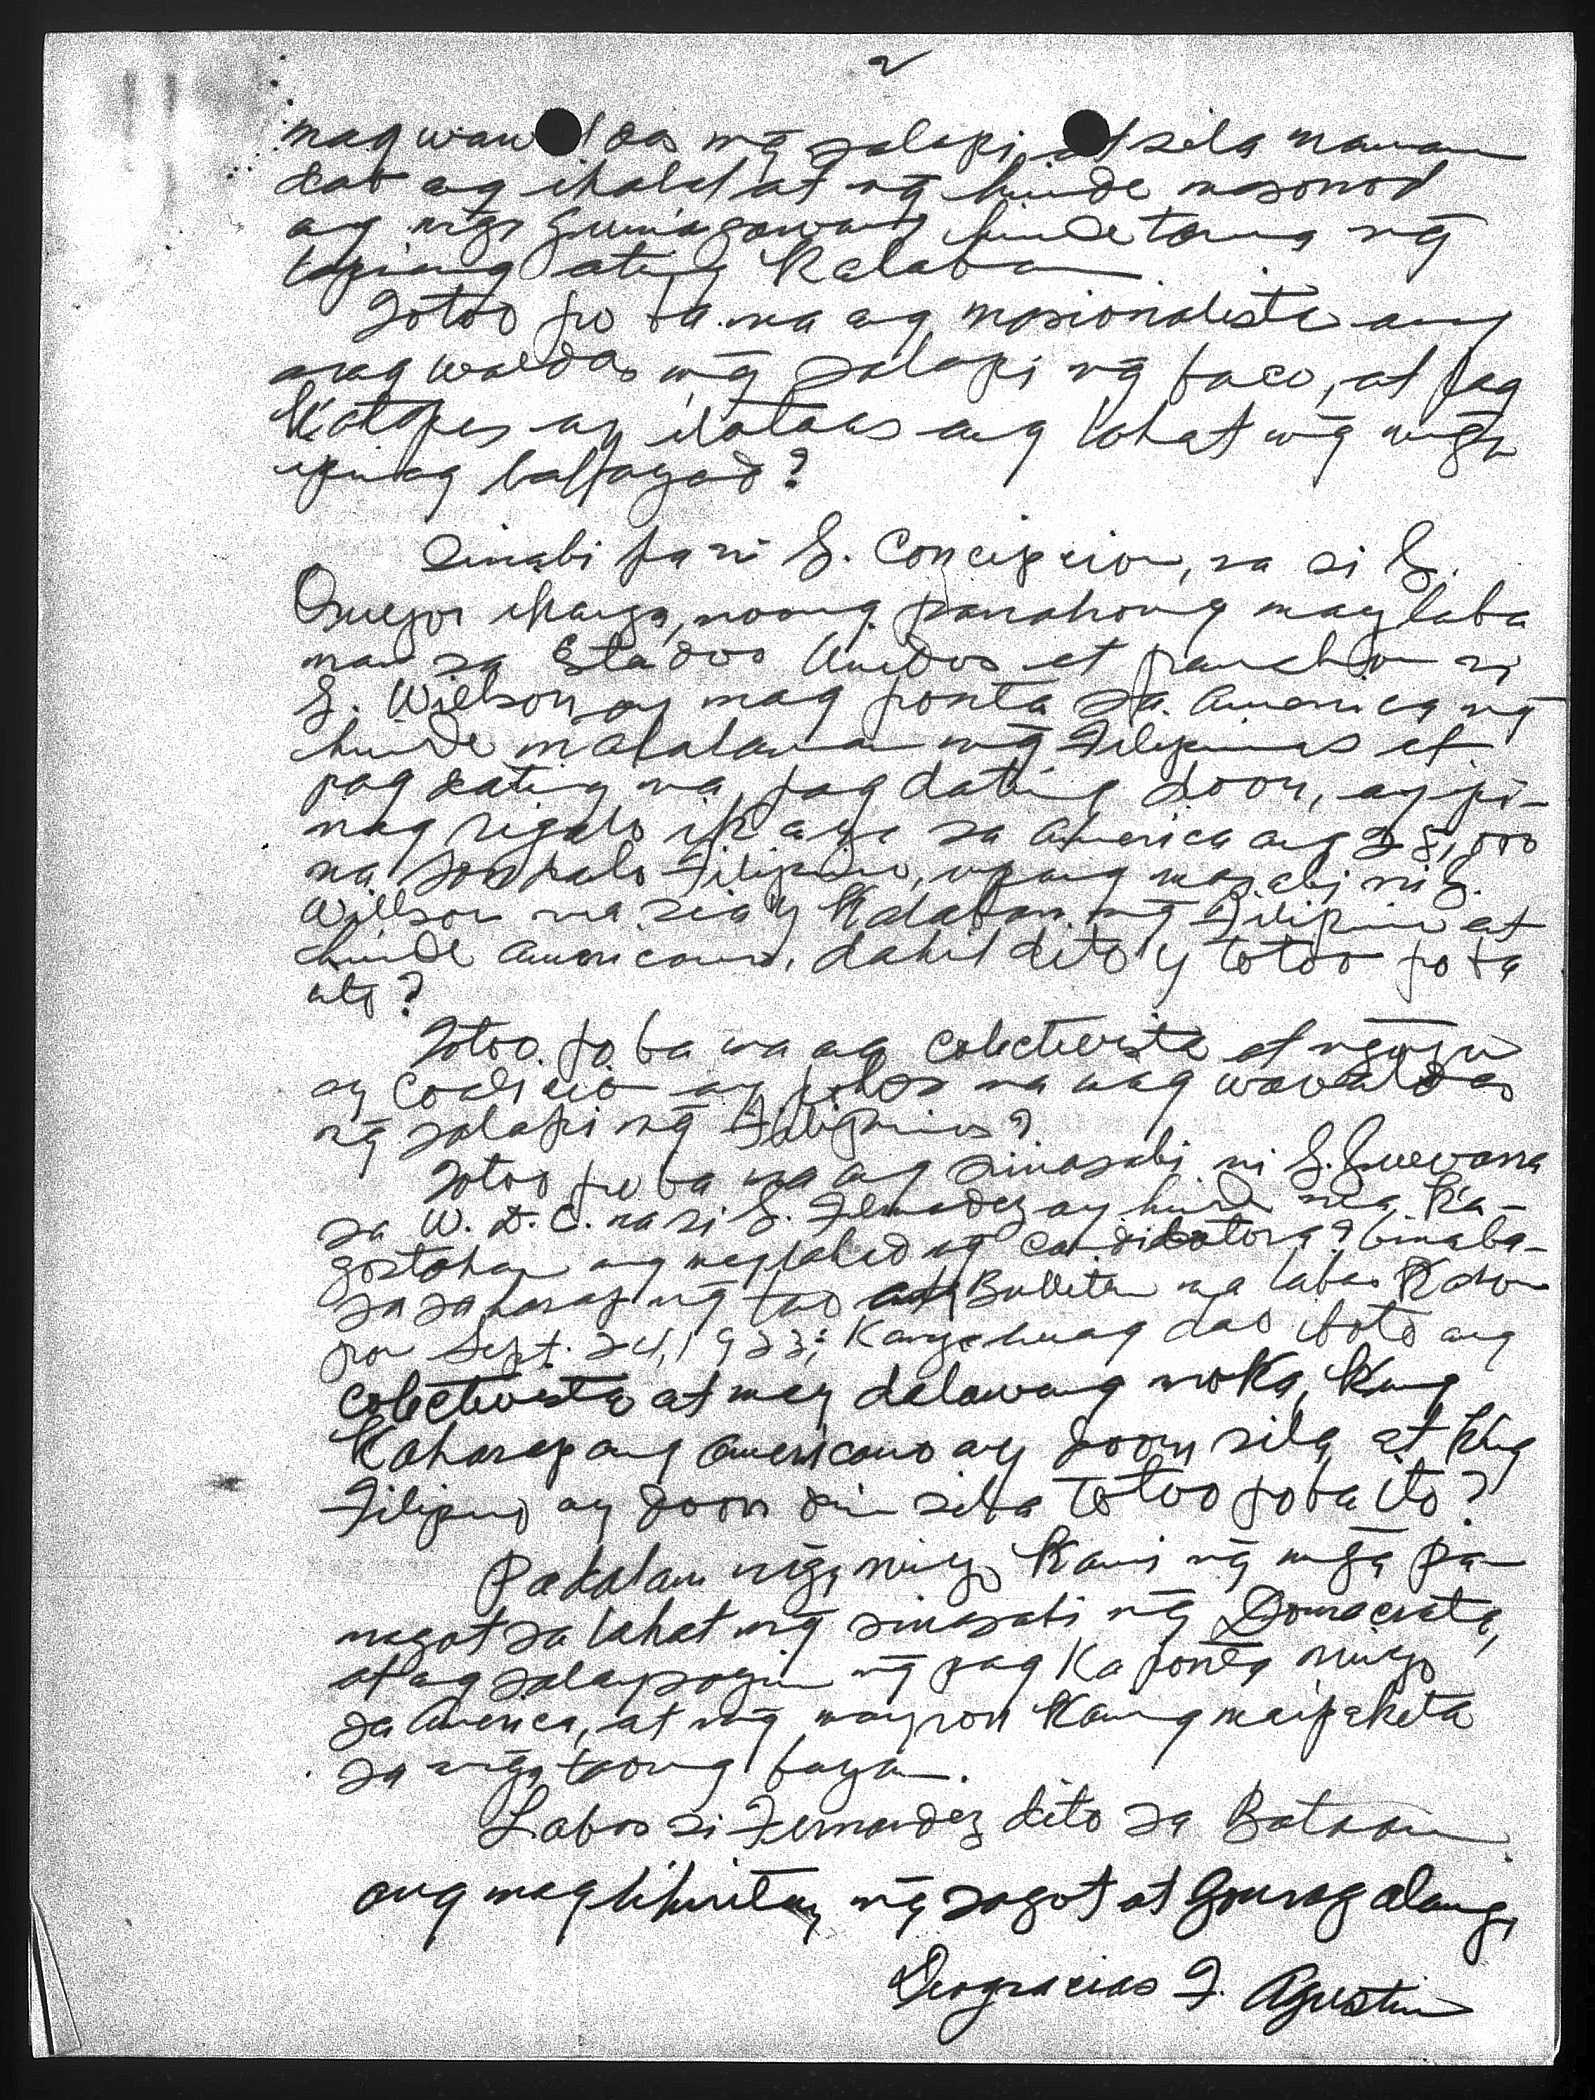 2
mag wawaldas ng̃ salapi, at sila naman
dao ang ihalal at ng̃ hinde masonod
ang mga gumagawang hinde tama ng̃
ating Kalaban
Totoo po ba na ang nasionalista ang
nag waldas ng̃ salapi ng̃ baco, at pag
Katapos ay itataas ang lahat ng̃ mg̃a
ipinag babayad?
Sinabi pa ni G. Concipcion, na si G.
Quezon ikanga, noong panahong may laba
nan sa Estados Unidos at panahon ni
G. Willson, ay nag ponta sa America ng̃
hinde nalalaman ng̃ Filipinas at
pag dating na pag dating doon, ay pi-
nag regalo ika nga sa America ang 28,000
na sondalo Filipino, upang masabi ni G.
Willson na siay Kalaban ng̃ Filipino at
hinde americano, dahil dito'y totoo po ba
ito?
Totoo po ba na ang colectivista at ng̃ayon
ay Coalicio ay na nag wawaldas
ng̃ salapi ng̃ Filipinas?
Totoo po ba na ang sinasabi ni G. Guevarra
sa W. D. C. na si G. Fernadez ay hinde nia Ka-
gostohan ang naglabed ng̃ candidatora? binaba-
sa sa harap ng̃ tao ang Bulletan na labas Kahon
pon Sept. 24, 1923; Kanya huag dao iboto ang
colectivista at may dalawang moKa, Kung
Kaharap ang americano ay doon sila at Kung
Filipino ay doon din sila totoo po ba ito?
Padalan ng̃a ninyo Kami ng̃ mg̃a pa-
nagot sa lahat ng̃ sinasabi ng̃ Democrata,
at ang salaysayin ng̃ pag Ka ponta ninyo
sa America, at ng̃ mayron Kaming maipakita
sa mg̃a taong bayan.
Labos si Fernandez dito sa Bataan.
ang maghihintay ng̃ sagot at gumagalang,
Deogracias F. Agustin